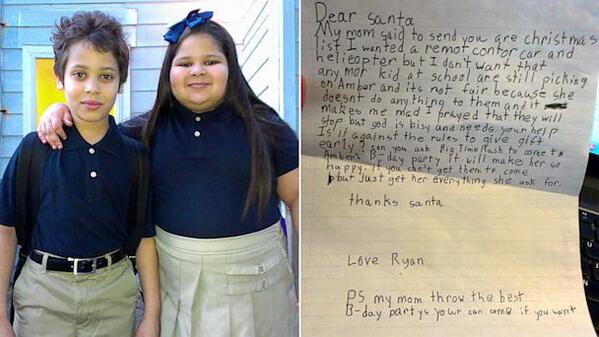 Dear santa
My mom said to send you are christmas
list I wanted a remot contor car and
helicopter but I don't want that
any mor kid at school are still picking
on Amber and its not fair because she
doesnt do anything to them and it
makes me mad I prayed that they will
stop but god is bisy and needs your help
Is it against the rules to give gift
early? can you ask Big Time Rush to come to
Amber's B-day party It will make her so
happy. If you can't get them to come
but Just get her everything she ask for.
thanks santa
Love Ryan
PS my mom throw the best
B-day partys your can come if you wan't